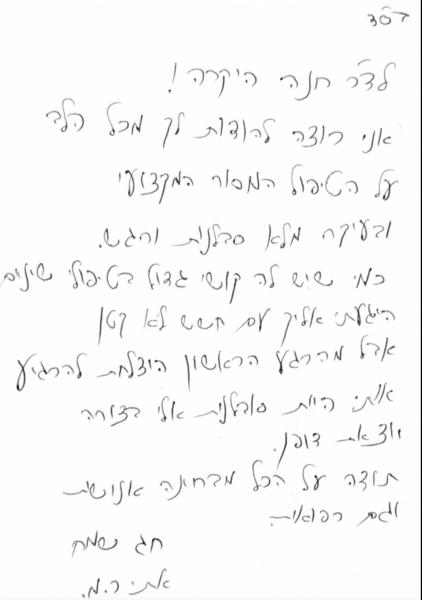 בס"ד
לד"ר חנה היקרה!
אני רוצה להודות לך מכל הלב
על הטיפול המסור המקצועי
ובעיקר מלא סבלנות ורגש.
כמי שיש לה קושי גדול בטיפולי שיניים
הגעתי אליך עם חשש לא קטן
אבל מהרגע הראשון הצלחת להרגיע
אותי. היית סבלנית אלי בצורה
יוצאת דופן.
תודה על הכל מבחינה אנושית
וגם רפואית.
חג שמח
אתי ר.מ.